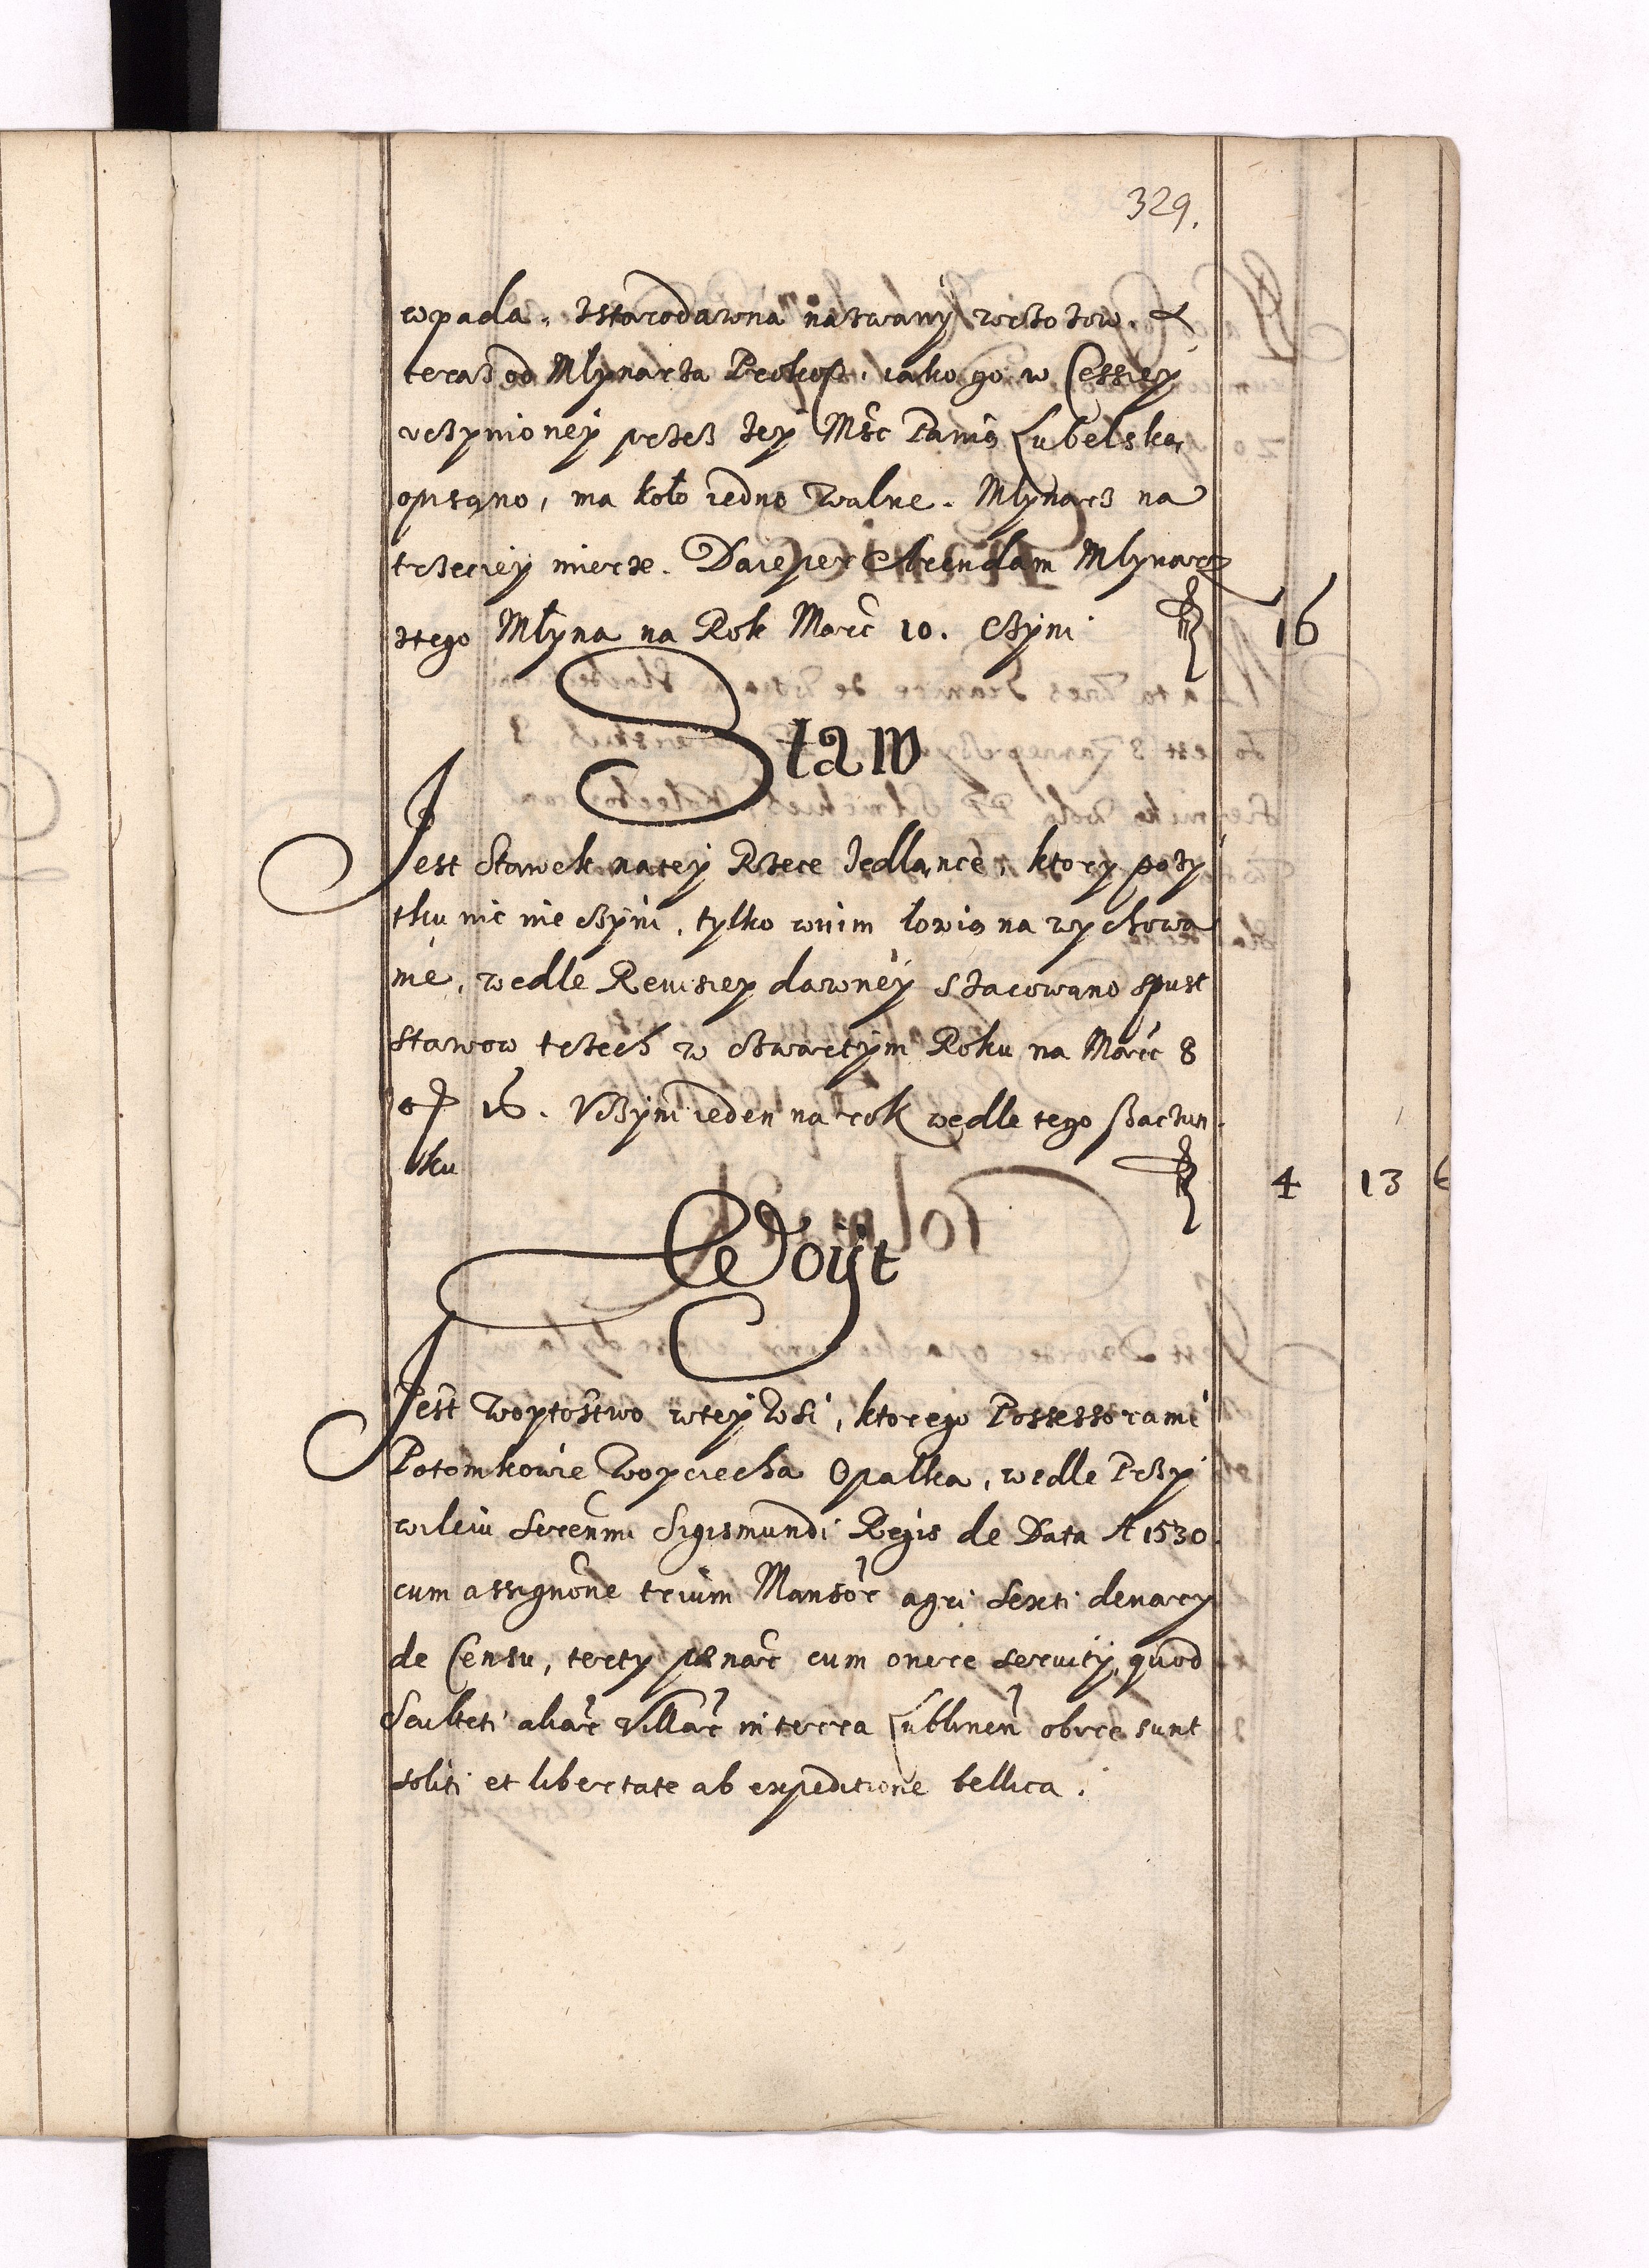 329.
wpada. Zstarodawna nazwany A
teraz od Mlynarza Prokosz, iako go w Cessiey
vczynioney przez Jey Mśc Panią Lubelską,
opisano, ma koło iedno walne. Mlynarz na
trzeciey mierze. Daie per Arendam Mlynarz
ztego Młyna na Rok Març 10. Czyni 16
Staw
Jest Stawek natey Rzece Jedlance, ktory pozy
tku nic nie czyni, tylko wnim łowią na wychowa
nie, wedle Reuisiey dawney szacowano spust
stawow trzech w czwartym Roku na Març 8
gr 16. Vczyni ieden na rok wedle tego szacun
ku 4 13
Woÿt
Jest Woytostwo wtey Wsi, ktorego Possessorami
Potomkowie Woyciecha Opalka, wedle Przy
wileiu Serenmi Sigismundi Regis de Data A 1530.
cum assignone trium Mansor agri sexti denary
de Censu, terty pænar cum onere seruity, quod
Sculteti aliar Villar in terra Lublinen obire sunt
soliti et libertate ab expeditione bellica.